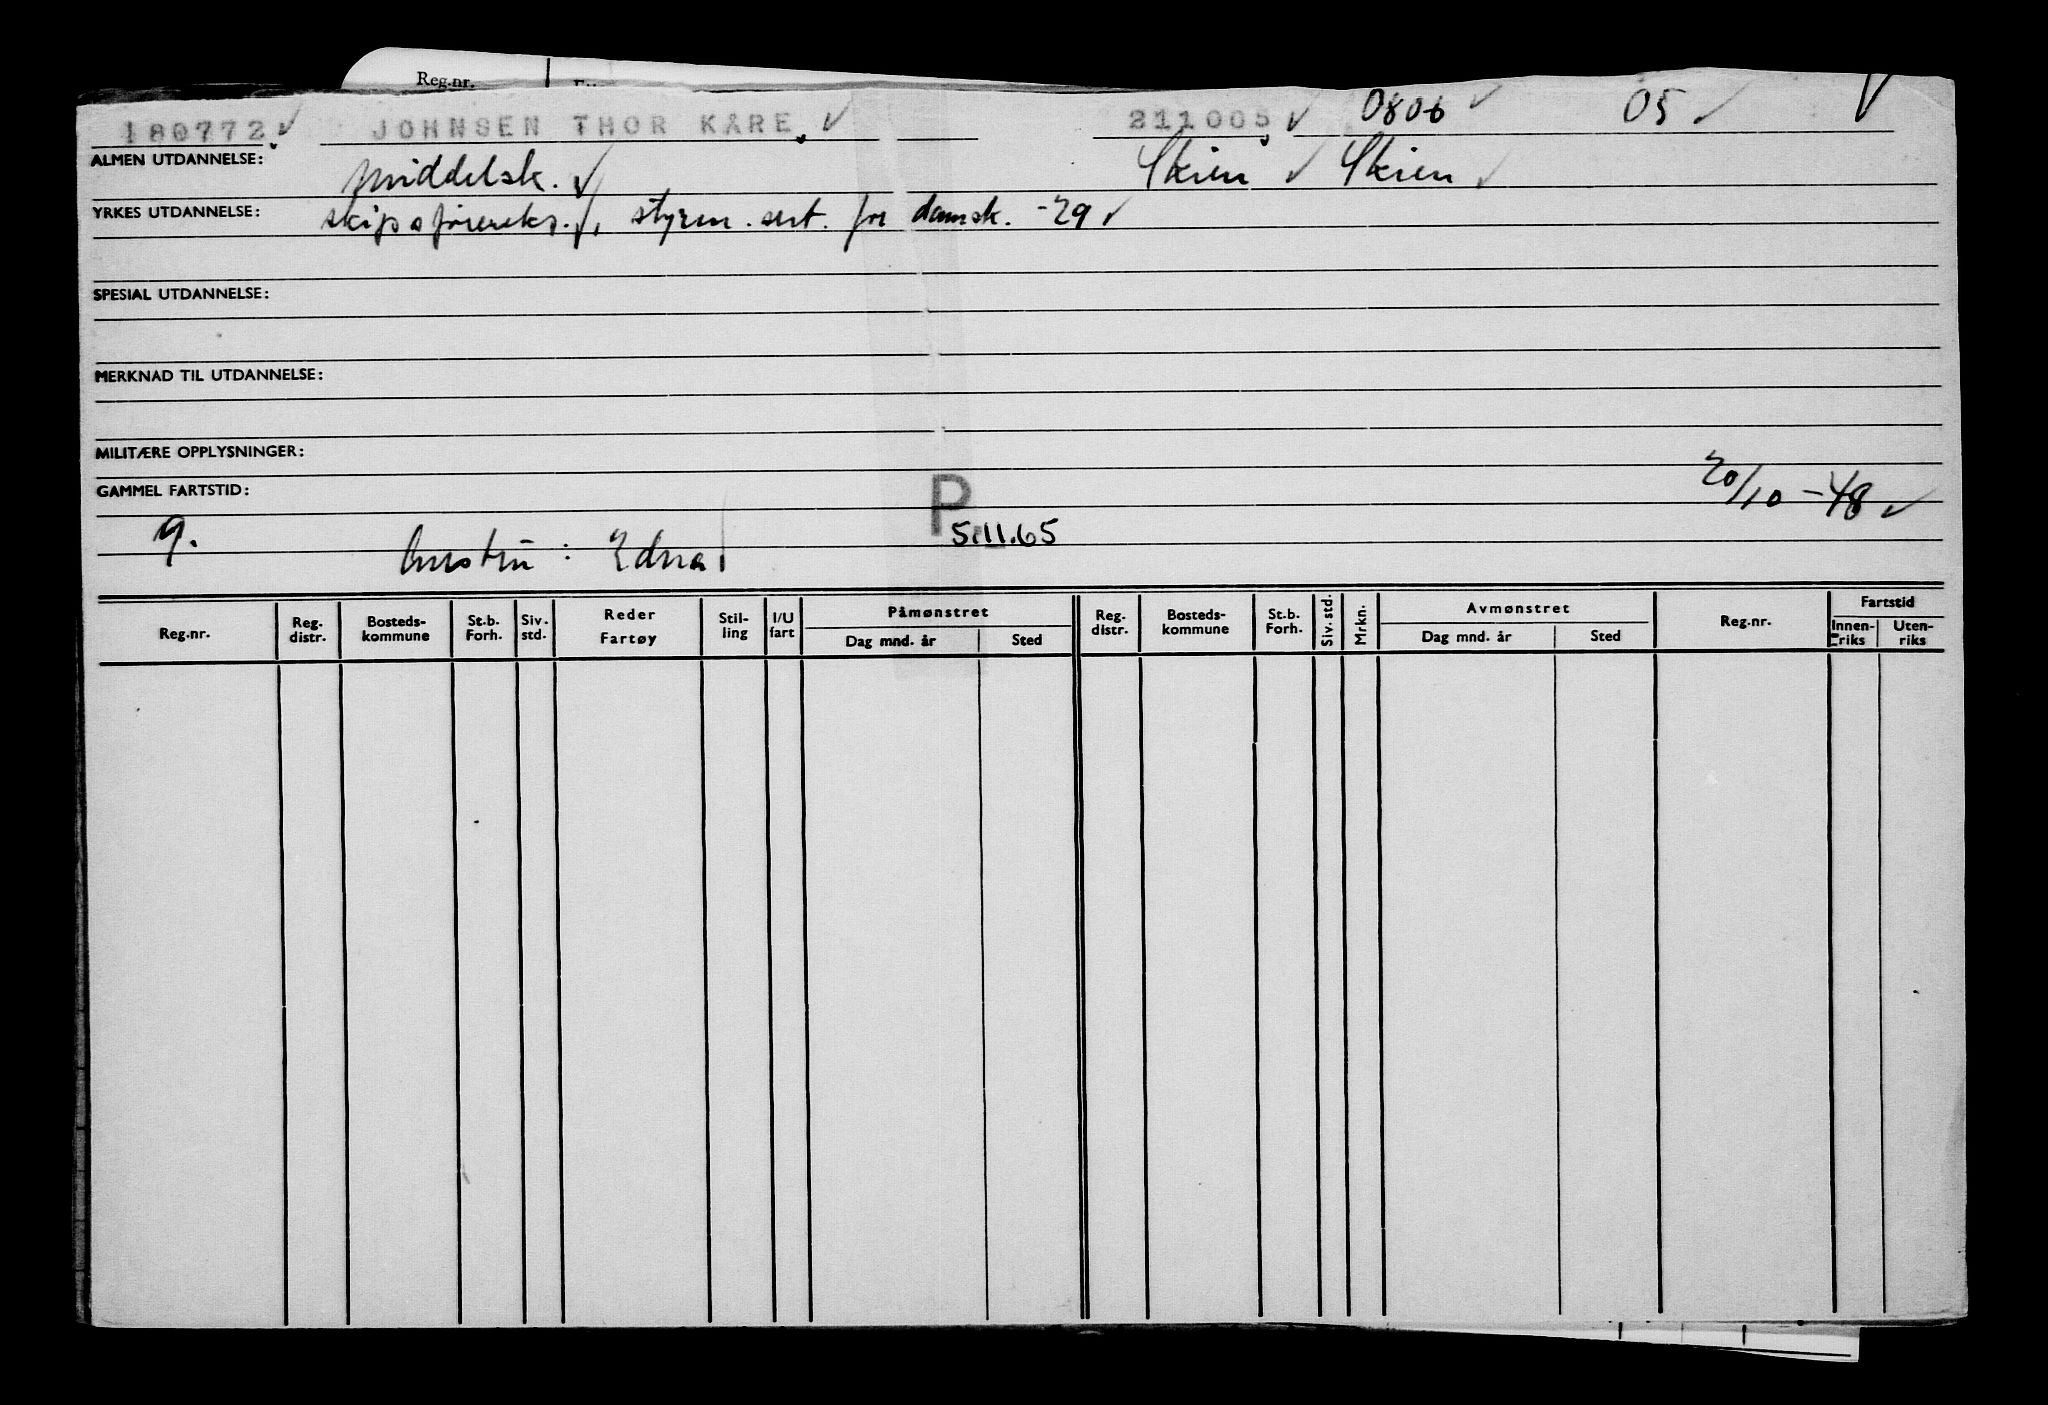 Reg.nr.
180772 JOHNSEN THOR KÅRE 211005 0806 05
ALMEN UTDANNELSE: Middelsk. Skien Skien
YRKES UTDANNELSE: skipsførereks., styrm. sert. fra dansk. -29
SPESIAL UTDANNELSE:
MERKNAD TIL UTDANNELSE:
MILITÆRE OPPLYSNINGER:
GAMMEL FARTSTID: P 20/10-48
g. hustru: Edna 5.11.65
Reg.nr. Reg. distr. Bosteds- kommune St.b. Forh. Siv. std. Reder Fartøy Stil- ling I/U fart Påmønstret Dag mnd. år Sted Reg. distr. Bosteds- kommune St.b. Forh. Siv. std. Mrkn. Avmønstret Dag mnd. år Sted Reg.nr. Fartstid Innen- riks Uten- riks